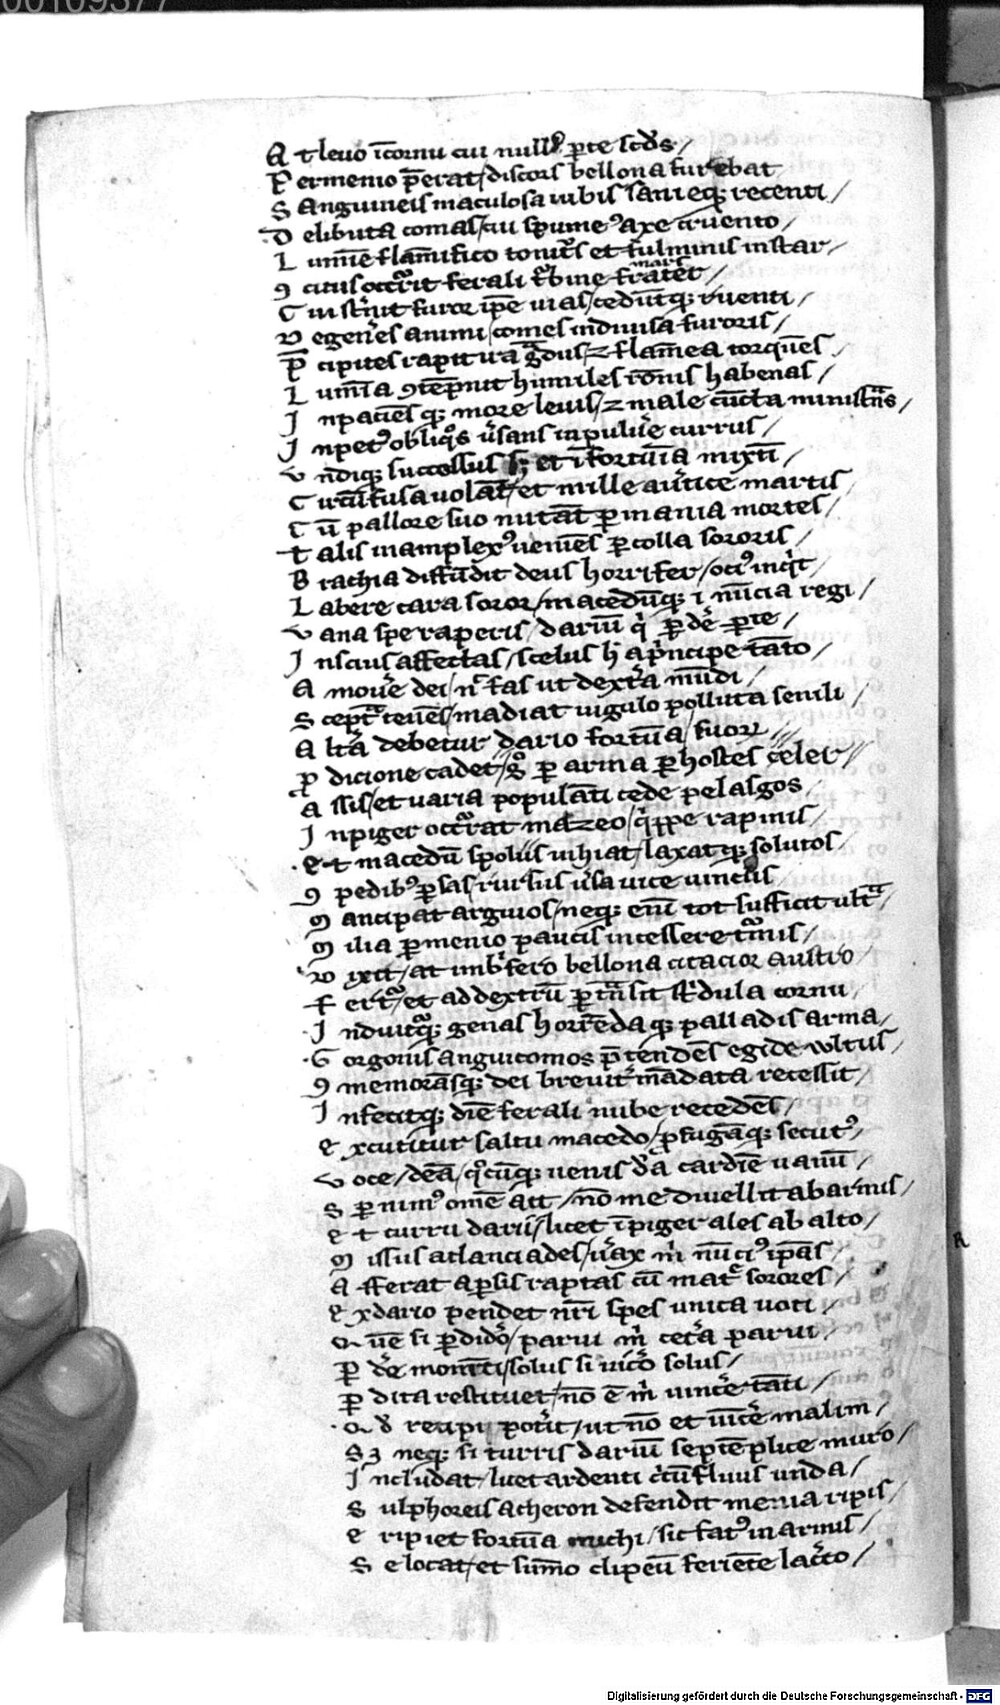 A t leuo ī cornu cui null᷒ ꝑte scđs /
P ermenio p̄erat / discors bellona furebat
S Anguineis maculosa iubis sāniēq; recenti /
D elibuta comas / cui spume᷒ axe cruento /
L umīe flāmifico tonitͥs et fulminis instar /
ꝯ citus occͬrit ferali tͬbine frater /
mars
C ui st̾nit furor ip̄e uias / cedūtq; ruenti /
D egen̾es animi / comes indiuisa furoris /
P̄ cipites rapit ira gͣdus / ⁊ flāmea torquēs /
L umīa ꝯtēpnit humiles rōnis habenas /
I npaciēs q; more leuis / ⁊ male cūcta ministͣns /
I npet᷒ obliqͦs u̾sans in pulu̾e currus /
V ndiq; successus s; et īfortūia mixtī /
C ircūfusa uolāt / et mille a u̾tice martis
C ū pallore suo nutāt ꝑ inania mortes /
T alis in amplex᷒ ueniēs ꝑ colla sororis /
B rachia diffūdit deus horrifer / oci᷒ inqͥt /
L abere cara soror / macedūq; ī nūcia regi /
V ana spe raperis / dariū qͥ ꝑdēre ꝑte /
I nscius affectas / scelus h̾ a pͥncipe tāto /
A mou̾e dei / nͨ fas ut dext̾a mūdi /
S ceptͣ tenēs / madiat iugulo polluta senili /
A lt̾a debetur dario fortūa / suorꝝ
ꝓ dicione cadet / gͦ ꝑ arma ꝑ hostes celer //
A ssis / et uaria populāti cede pelasgos
I npiger occͬrat mazeo / qͥppe rapinis /
E t macedū spoliis inhiat / laxatq; solutos /
ꝯ pedib᷒ ꝑsas / rursus u̾sa uice uinctis
M ancipat argiuos / neq; eīm tot sufficit ultͣ /
M ilia ꝑmenio paucis incessere tͬmis /
D ixit / at imbͥfero bellona citacior austro /
F ertͬ / et ad dextrū ꝑ tͣnsit stͥdula cornu /
I nduitqͣ; genas horrēda q; palladis arma /
G orgonis anguicomos p̄tendēs egide wltus /
ꝯ memorāsq; dei breuit̾ mādata recessit /
I nfecitq; diē ferali nube recedēs /
E xcutitur saltu macedo / ꝓfugāq; secut᷒ /
V oce / dēa / qͨcūq; uenis d̾a cardīe uanū /
S ꝑ nimi᷒ omē ait / nō me diuellit ab armis /
E t curru darii / licet īpiger ales ab alto /
M issus atlanciades / u̾ax mͥ nūci᷒ ip̄as /
A fferat a ꝑsis raptas cū matͬ sorores /
E x dario pendet nr̄i spes unica uoti /
Q uē si ꝑdido̾ / parui mͥ cet̾a parui /
ꝑ d̾e momēti / solus si uic̾o solus /
ꝑ dita restituet / nō ē mͥ uinc̾e tāti /
Q đ recipi pot̾it / ut nō et uīc̾e malim /
Sꝫ neq; si turris dariū septēplice muro /
I ncludat / licet ardenti cͥcūfluus unda /
S ulphoreis acheron defendit menia ripis /
E ripiet fortūa michi / sic fat᷒ in armis /
S e locat / et sūmo clipeū feriēte lac̾to /
R
Digitalisierung gefördert durch die Deutsche Forschungsgemeinschaft - DFG